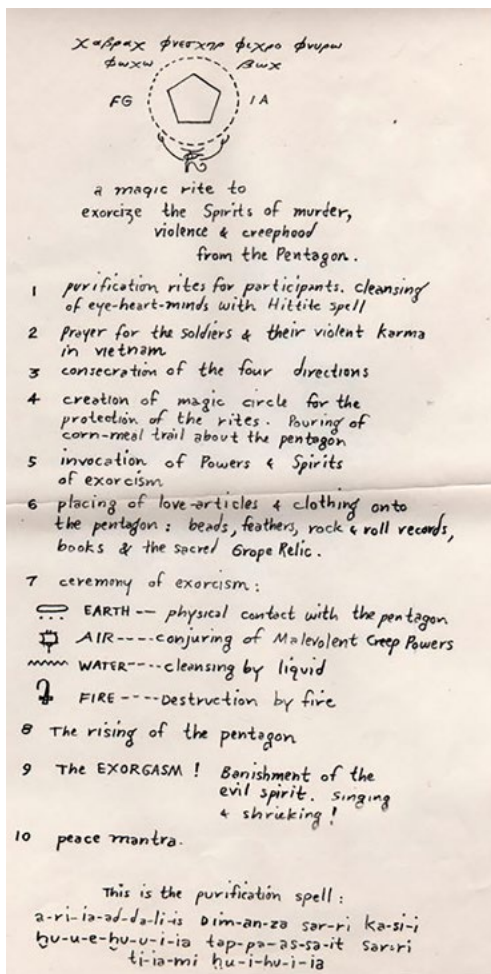 χαβραχ φνεσχηρ φιχρο φνυρω
φωχω βωχ
FG IA
a magic rite to
exorcize the Spirits of murder,
violence & creephood
from the Pentagon.
1 purification rites for participants. cleansing
of eye-heart-minds with Hittite spell
2 Prayer for the soldiers & their violent karma
in vietnam
3 consecration of the four directions
4 creation of magic circle for the
protection of the rites. Pouring of
corn-meal trail about the pentagon
5 invocation of Powers & Spirits
of exorcism
6 placing of love-articles & clothing onto
the pentagon: beads, feathers, rock & roll records,
books & the sacred Grope Relic.
7 ceremony of exorcism:
EARTH -- physical contact with the pentagon
AIR---- conjuring of Malevolent Creep Powers
WATER---- cleansing by liquid
FIRE ---- Destruction by fire
8 The rising of the pentagon
9 The EXORGASM! Banishment of the
evil spirit. Singing
& shrieking!
10 peace mantra.
This is the purification spell:
a-ri-ia-ad-da-li-is Dim-an-za sar-ri ka-si-i
ḫu-u-e-ḫu-u-i-ia tap-pa-as-sa-it sar-ri
ti-ia-mi ḫu-i-ḫu-i-ia